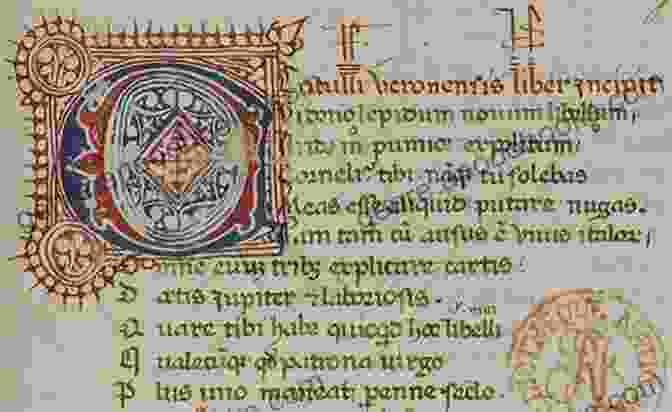 Catulli Veronensis liber incipit
ui dono lepidum novum libellum
rido in pumice expolitum
Corneli tibi nāq tu solebas
Meas esse aliquid putare nugas.
am tam cū ausus ē unus italoꝝ
omne euuꝫ tribꝫ explicare cartis
D octis Jupiter ⁊ laboriosis.
Q uare tibi habe quicqd hoc libelli
Q ualecūqꝫ qđ patrona uirgo
P lus uno maneat ꝑenne seclo.